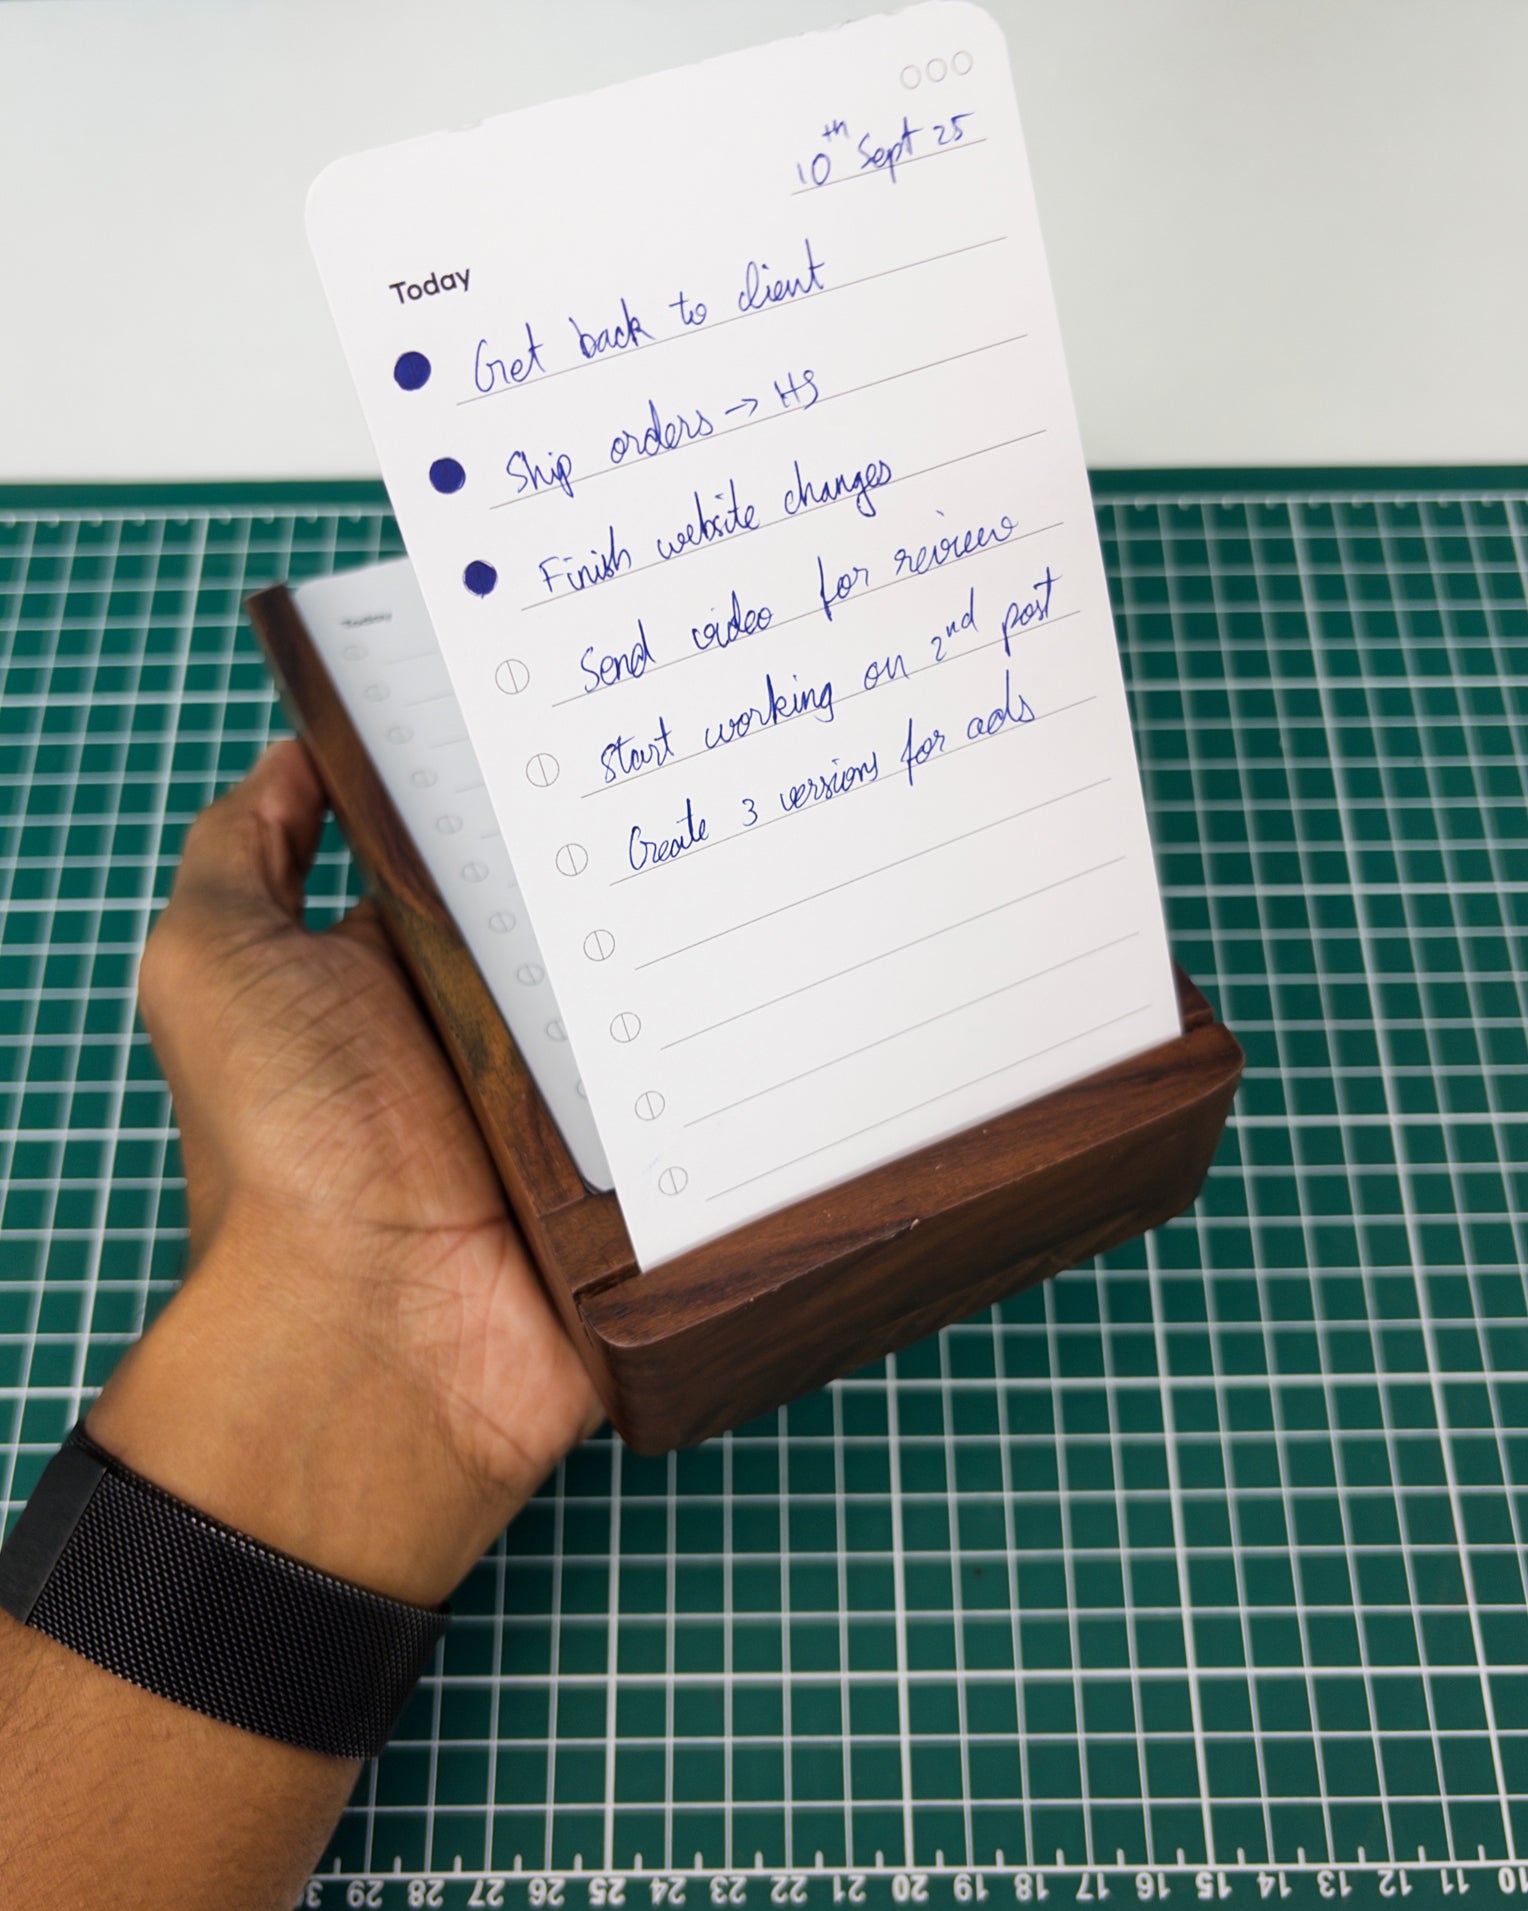 10th Sept 25
Today
Get back to client
Ship orders → HS
Finish website changes
Send video for review
Start working on 2nd post
Create 3 versions for ads
Today
29 28 27 26 25 24 23 22 21 20 19 18 17 16 15 14 13 12 11 10